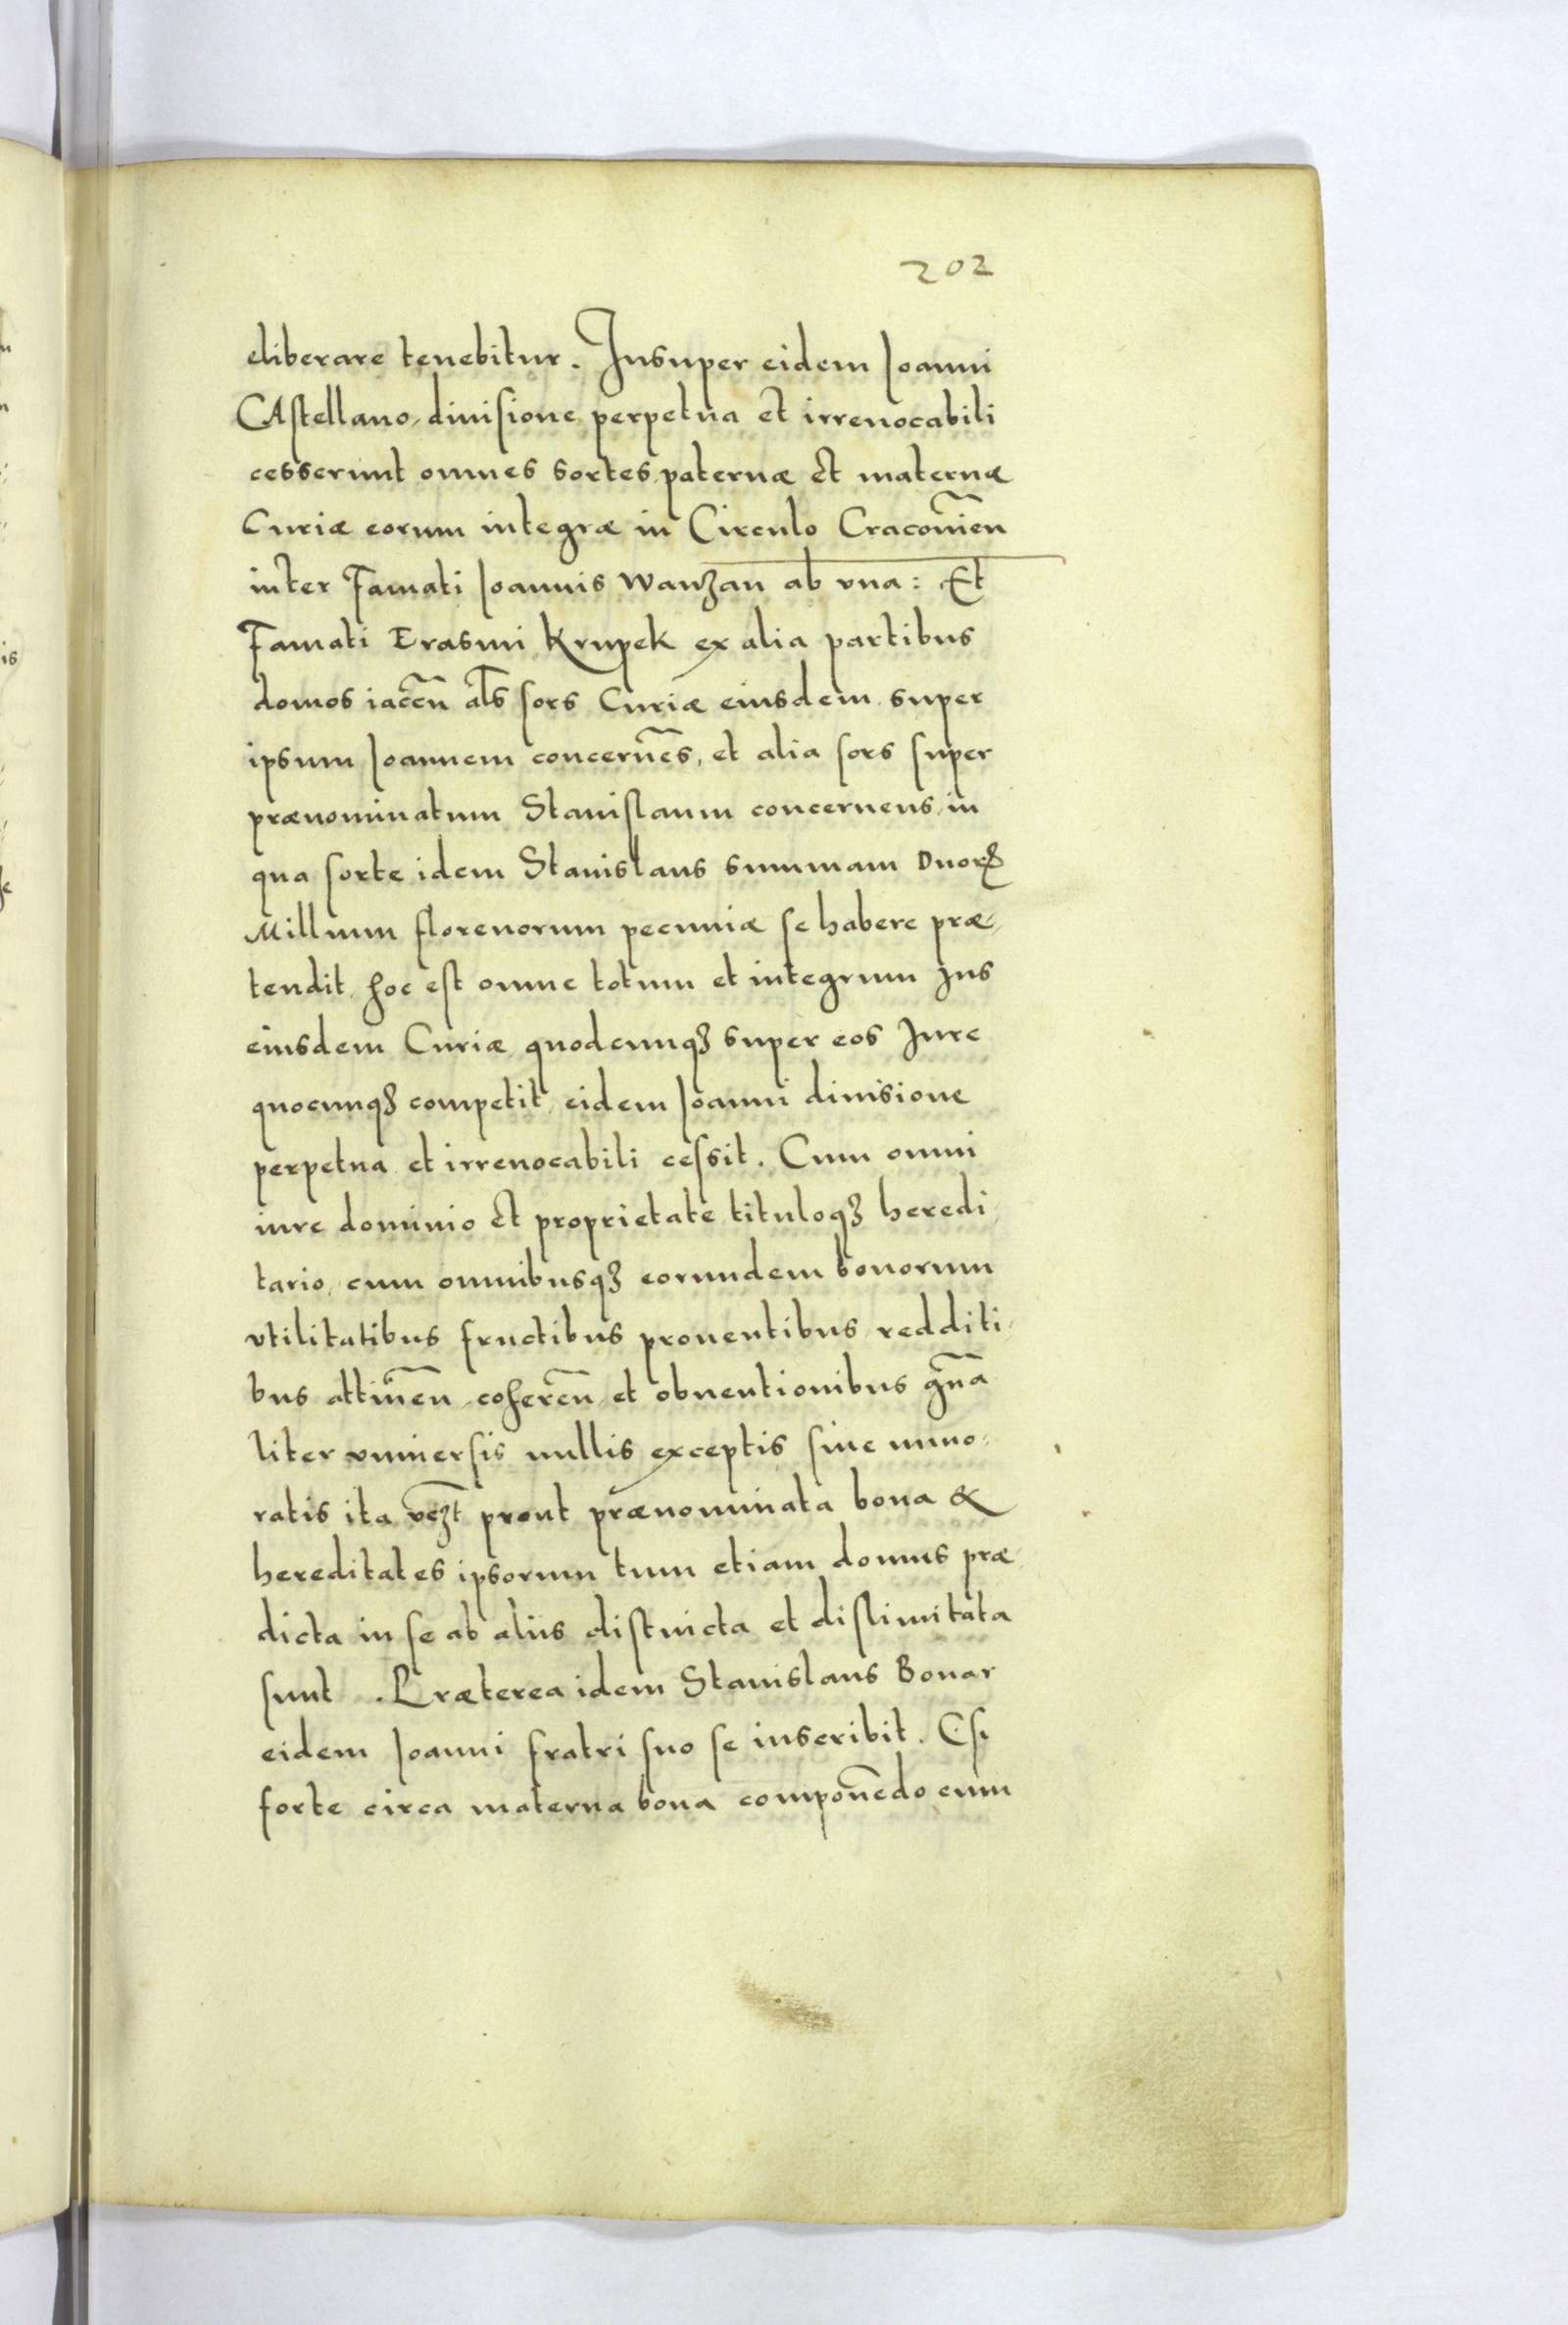 202
eliberare tenebitur. Insuper eidem Ioanni
CAstellano, diuisione perpetua et irreuocabili
cesserunt omnes sortes paternæ et maternæ
Curiæ eorum integræ in Circulo Cracouien̄
inter Famati Ioannis Wanzan̄ ab vna: Et
Famati Erasmi Krupek ex alia partibus
domos iacen̄ al̄s sors Curiæ eiusdem super
ipsum Ioannem concernēs, et alia sors super
prænominatum Stanislaum concernens in
qua sorte idem Stanislaus summam Duorꝝ
Millium florenorum pecuniæ se habere præ-
tendit, hoc est omne totum et integrum Ius
eiusdem Curiæ quodcunqꝫ super eos Iure
quocunqꝫ competit, eidem Ioanni diuisione
perpetua et irreuocabili cessit. Cum omni
iure dominio et proprietate tituloqꝫ heredi,
tario, cum omnibusqꝫ eorundem bonorum
vtilitatibus fructibus prouentibus redditi,
bus attinen̄, coheren̄, et obuentionibus gn̄a
liter vniuersis nullis exceptis siue mino,
ratis ita vꝫt prout prænominata bona &
hereditates ipsorum tum etiam domus præ,
dicta in se ab aliis distincta et dislimitata
sunt. Præterea idem Stanislaus Bonar
eidem Ioanni fratri suo se inscribit. Qsi
forte circa materna bona componēdo cum